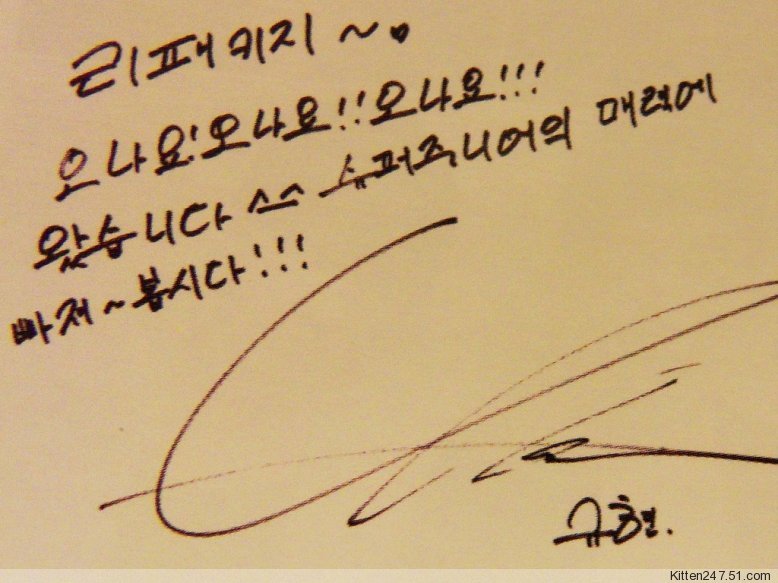 리패키지~.
오나요!오나요!!오나요!!!
왔습니다^^ 슈퍼주니어의 매력에
빠져~봅시다!!!
규현.
Kitten247.51.com